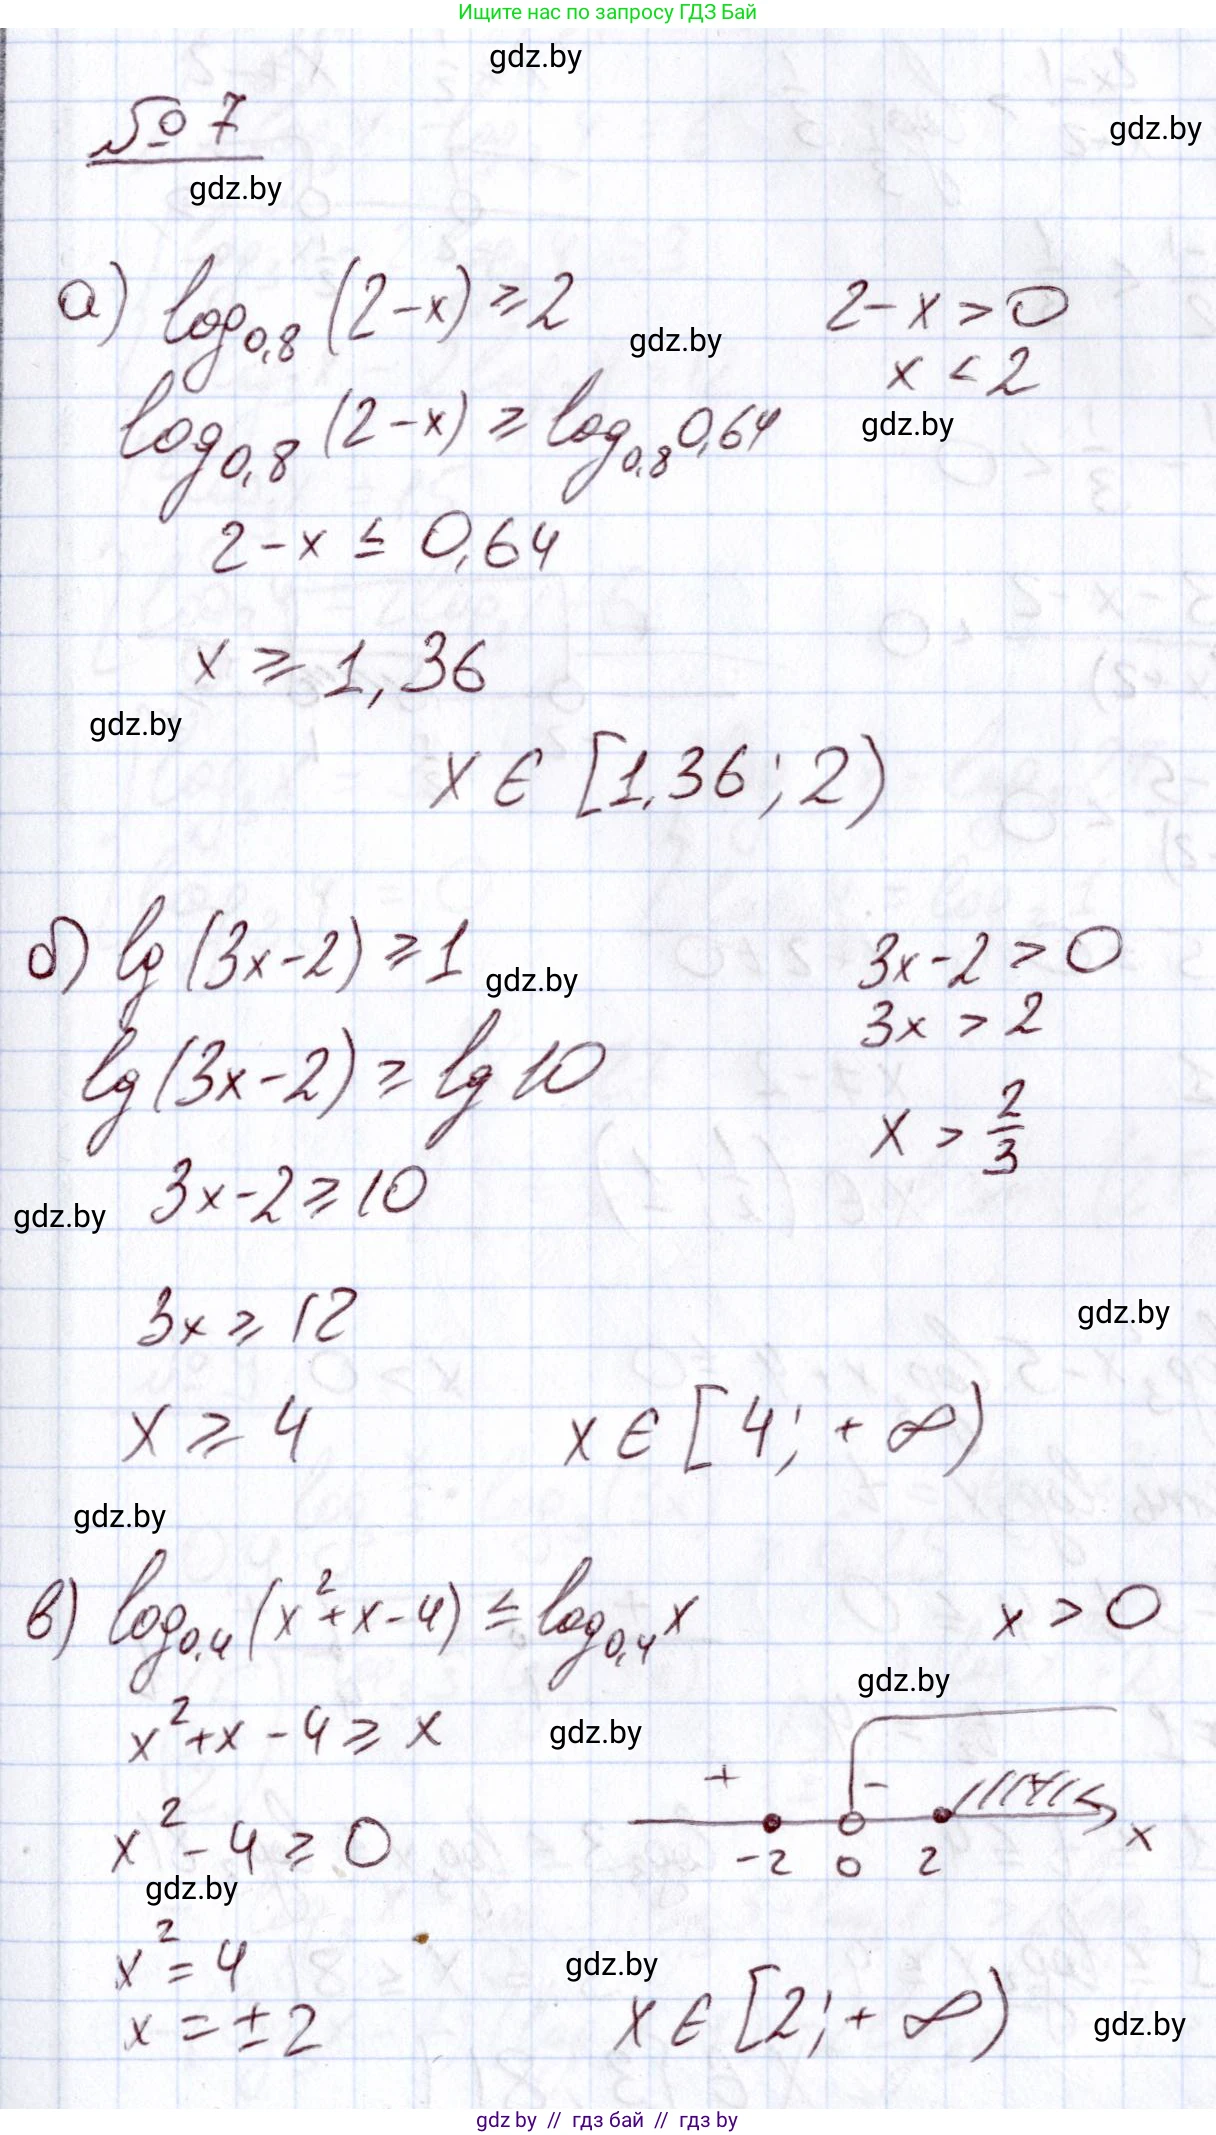 Ищите нас по запросу ГДЗ Бай
gdz.by
№ 7
gdz.by
gdz.by
а) log₀,₈ (2-x) ≥ 2
2-x > 0
gdz.by
x < 2
log₀,₈ (2-x) ≥ log₀,₈ 0,64
gdz.by
2-x ≤ 0,64
x ≥ 1,36
gdz.by
x ∈ [1,36; 2)
б) lg (3x-2) ≥ 1
3x-2 > 0
gdz.by
3x > 2
lg (3x-2) ≥ lg 10
x > 2/3
3x-2 ≥ 10
gdz.by
3x ≥ 12
gdz.by
x ≥ 4
x ∈ [4; +∞)
gdz.by
в) log₀,₄ (x²+x-4) ≤ log₀,₄ x
x > 0
gdz.by
x²+x-4 ≥ x
gdz.by
+ - +
-2 0 2 x
x²-4 ≥ 0
gdz.by
x² = 4
gdz.by
x = ±2
x ∈ [2; +∞)
gdz.by
gdz.by // гдз бай // гдз by